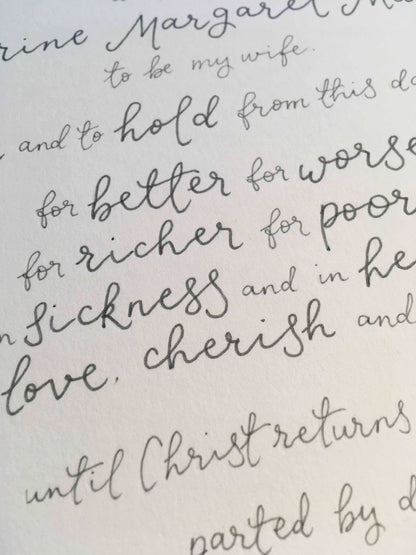 Margaret
to be my wife.
and to hold from this
for better for worse
for richer for poor
sickness and in
love, cherish and
until Christ returns
parted by